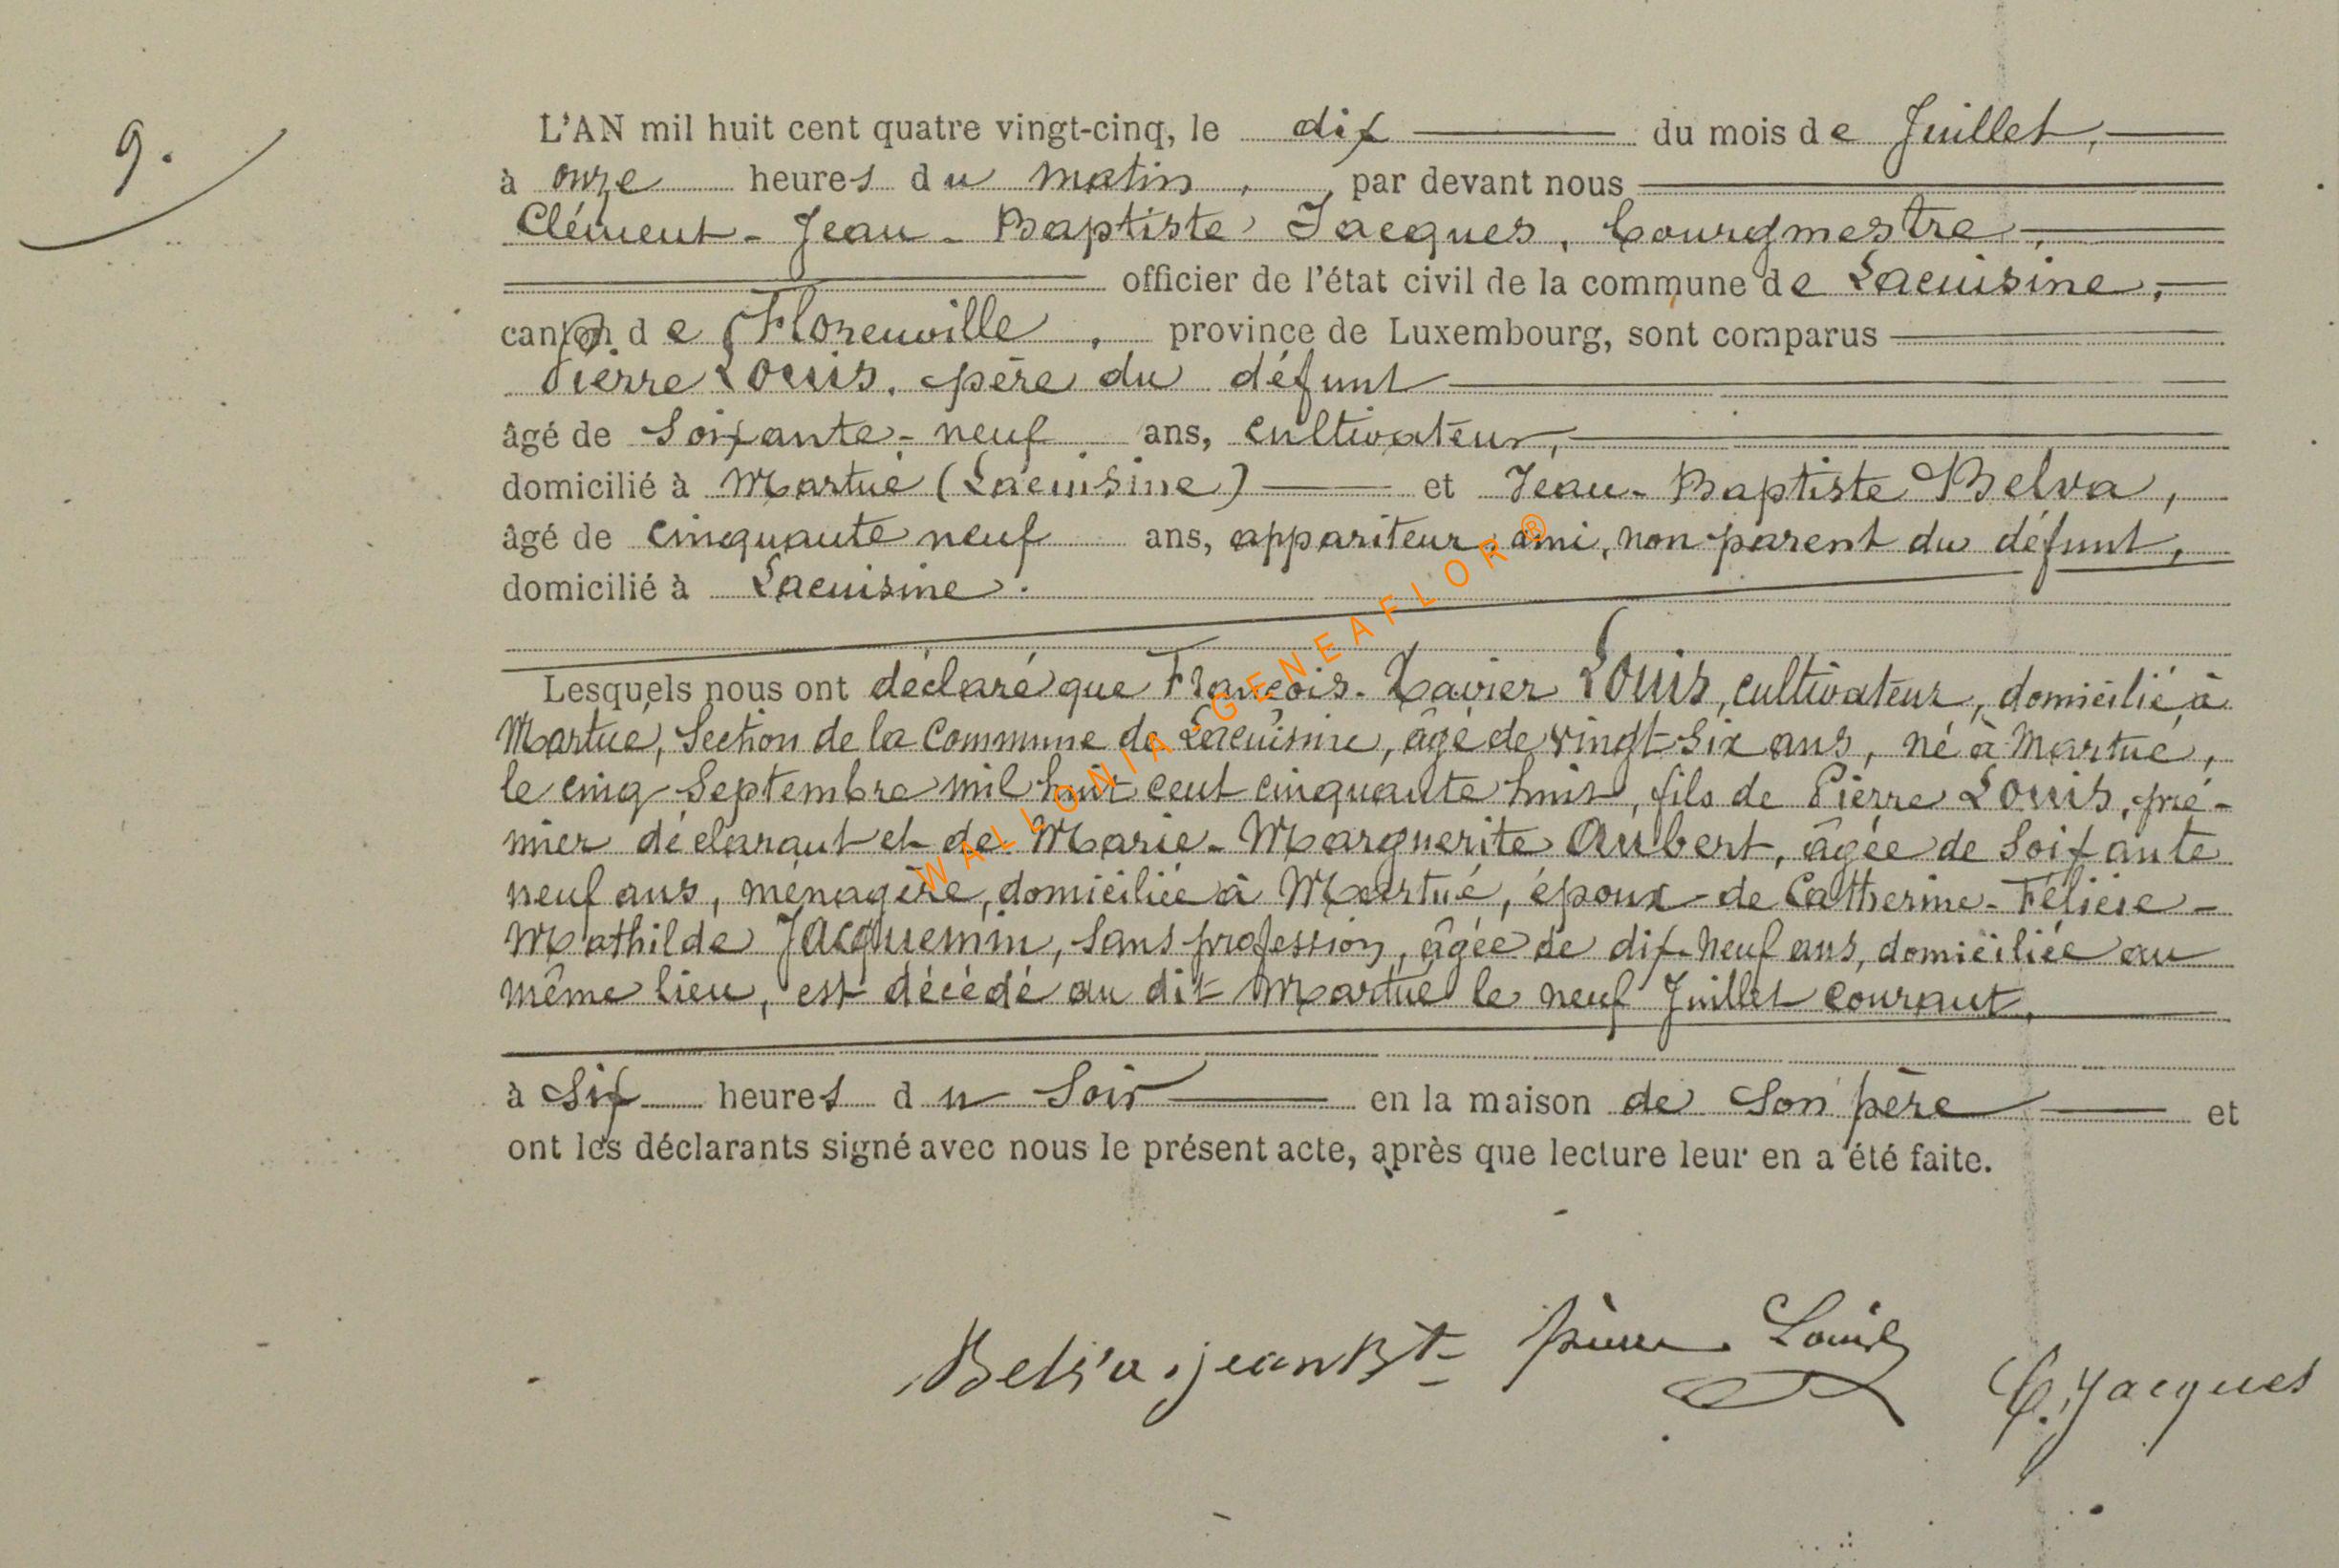 9.
L'AN mil huit cent quatre vingt-cinq, le dix du mois de Juillet,
à onze heures du matin, par devant nous
Clément-Jean-Baptiste Jacques, bourgmestre,
officier de l'état civil de la commune de Lacuisine,
canton de Florenville, province de Luxembourg, sont comparus
Pierre Louis, père du défunt
âgé de Soixante-neuf ans, cultivateur,
domicilié à Martué (Lacuisine) et Jean-Baptiste Belva,
âgé de cinquante neuf ans, appariteur, ami, non parent du défunt,
domicilié à Lacuisine.
Lesquels nous ont déclaré que François-Xavier Louis, cultivateur, domicilié à
Martué, Section de la Commune de Lacuisine, âgé de vingt-six ans, né à Martué,
le cinq Septembre mil huit cent cinquante huit, fils de Pierre Louis, pre-
mier déclarant et de Marie-Marguerite Aubert, âgée de Soixante
neuf ans, ménagère, domiciliée à Martué, époux de Catherine-Félicie-
Mathilde Jacquemin, Sans profession, âgée de dix-neuf ans, domiciliée au
même lieu, est décédé au dit Martué le neuf Juillet courant,
à Six heures du Soir en la maison de Son père et
ont les déclarants signé avec nous le présent acte, après que lecture leur en a été faite.
Belva jean Bte Pierre Louis C. Jacques
WALLONIA-GENEAFLOR®